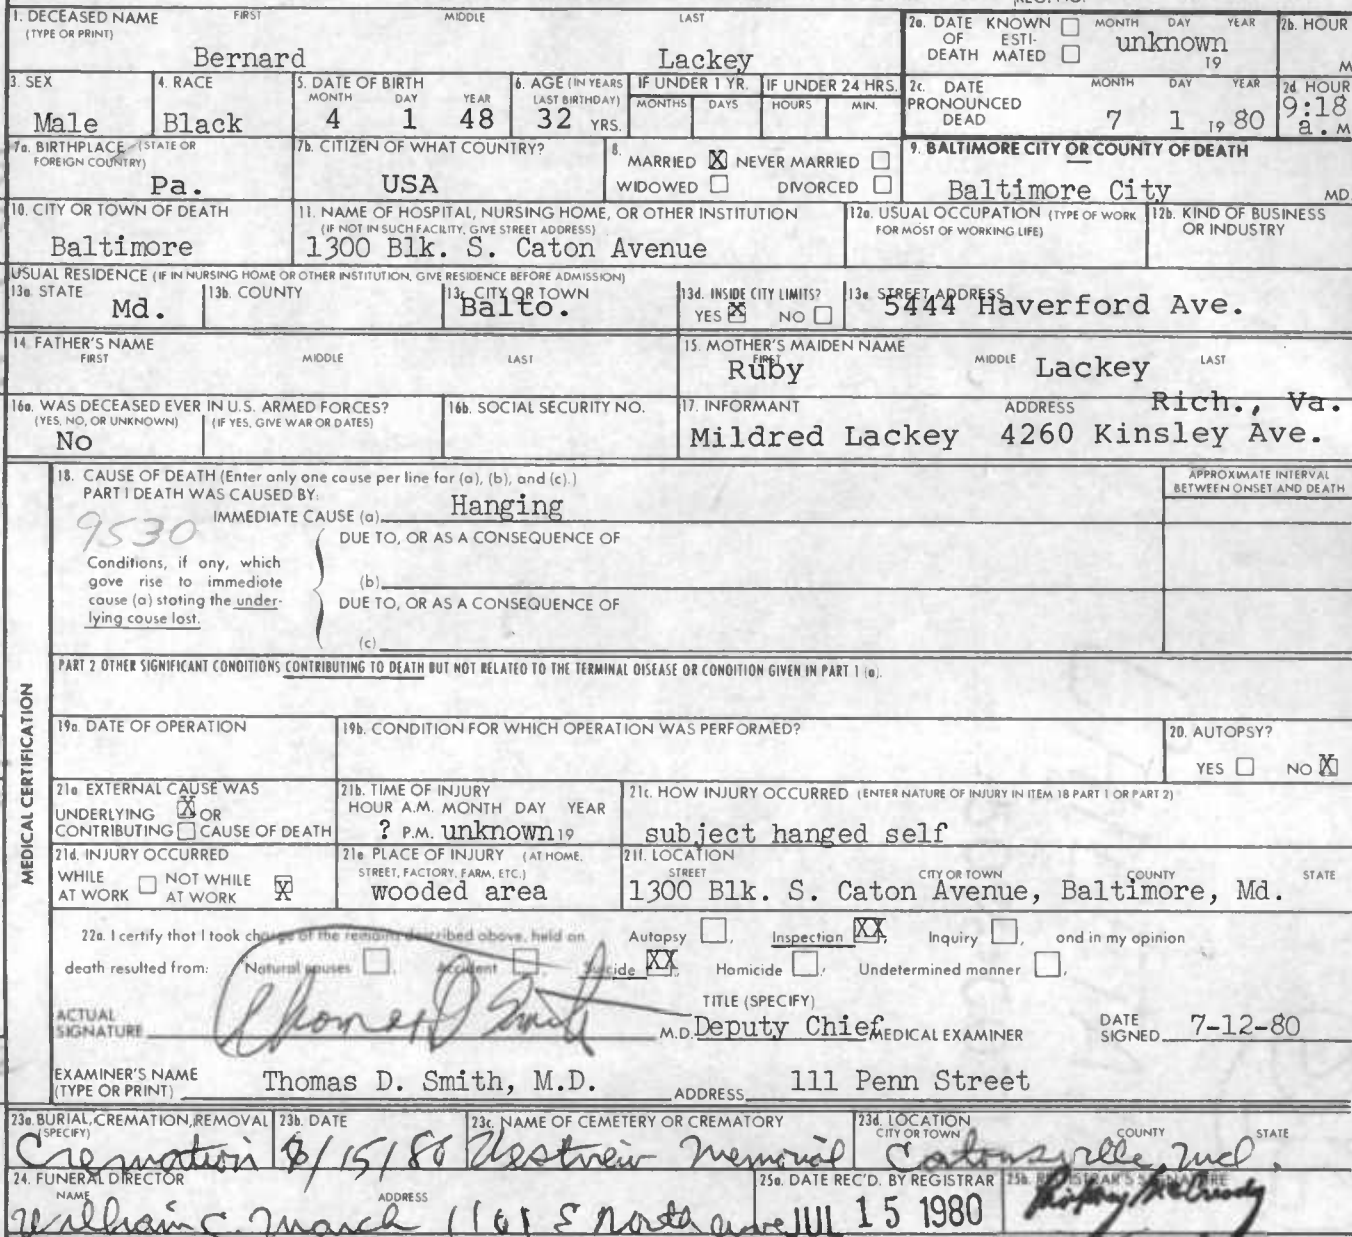 1. DECEASED NAME FIRST MIDDLE LAST
(TYPE OR PRINT)
Bernard Lackey
2a. DATE KNOWN ☐ MONTH DAY YEAR
OF ESTI-
DEATH MATED ☐ unknown 19
2b. HOUR
M
3. SEX
Male
4. RACE
Black
5. DATE OF BIRTH
MONTH DAY YEAR
4 1 48
6. AGE (IN YEARS
LAST BIRTHDAY)
32 YRS.
IF UNDER 1 YR.
MONTHS DAYS
IF UNDER 24 HRS.
HOURS MIN.
2c. DATE MONTH DAY YEAR
PRONOUNCED
DEAD 7 1 19 80
2d HOUR
9:18
a. M
7a. BIRTHPLACE (STATE OR
FOREIGN COUNTRY)
Pa.
7b. CITIZEN OF WHAT COUNTRY?
USA
8.
MARRIED X NEVER MARRIED ☐
WIDOWED ☐ DIVORCED ☐
9. BALTIMORE CITY OR COUNTY OF DEATH
Baltimore City MD.
10. CITY OR TOWN OF DEATH
Baltimore
11. NAME OF HOSPITAL, NURSING HOME, OR OTHER INSTITUTION
(IF NOT IN SUCH FACILITY, GIVE STREET ADDRESS)
1300 Blk. S. Caton Avenue
12a. USUAL OCCUPATION (TYPE OF WORK
FOR MOST OF WORKING LIFE)
12b. KIND OF BUSINESS
OR INDUSTRY
USUAL RESIDENCE (IF IN NURSING HOME OR OTHER INSTITUTION, GIVE RESIDENCE BEFORE ADMISSION)
13a. STATE
Md.
13b. COUNTY
13c. CITY OR TOWN
Balto.
13d. INSIDE CITY LIMITS?
YES X NO ☐
13e. STREET ADDRESS
5444 Haverford Ave.
14. FATHER'S NAME
FIRST MIDDLE LAST
15. MOTHER'S MAIDEN NAME
FIRST MIDDLE LAST
Ruby Lackey
16a. WAS DECEASED EVER IN U.S. ARMED FORCES?
(YES, NO, OR UNKNOWN) (IF YES, GIVE WAR OR DATES)
No
16b. SOCIAL SECURITY NO.
17. INFORMANT ADDRESS Rich., Va.
Mildred Lackey 4260 Kinsley Ave.
MEDICAL CERTIFICATION
18. CAUSE OF DEATH (Enter only one cause per line for (a), (b), and (c).)
PART I DEATH WAS CAUSED BY:
IMMEDIATE CAUSE (a) Hanging
APPROXIMATE INTERVAL
BETWEEN ONSET AND DEATH
9530
DUE TO, OR AS A CONSEQUENCE OF
Conditions, if any, which
gave rise to immediate
cause (a) stating the under-
lying cause last.
(b)
DUE TO, OR AS A CONSEQUENCE OF
(c)
PART 2 OTHER SIGNIFICANT CONDITIONS CONTRIBUTING TO DEATH BUT NOT RELATED TO THE TERMINAL DISEASE OR CONDITION GIVEN IN PART 1 (a).
19a. DATE OF OPERATION
19b. CONDITION FOR WHICH OPERATION WAS PERFORMED?
20. AUTOPSY?
YES ☐ NO X
21a EXTERNAL CAUSE WAS
UNDERLYING X OR
CONTRIBUTING ☐ CAUSE OF DEATH
21b. TIME OF INJURY
HOUR A.M. MONTH DAY YEAR
? P.M. unknown 19
21c. HOW INJURY OCCURRED (ENTER NATURE OF INJURY IN ITEM 18 PART 1 OR PART 2)
subject hanged self
21d. INJURY OCCURRED
WHILE AT WORK ☐ NOT WHILE AT WORK X
21e PLACE OF INJURY (AT HOME,
STREET, FACTORY, FARM, ETC.)
wooded area
21f. LOCATION
STREET CITY OR TOWN COUNTY STATE
1300 Blk. S. Caton Avenue, Baltimore, Md.
22a. I certify that I took charge of the remains described above, held an Autopsy ☐, Inspection XX, Inquiry ☐, and in my opinion
death resulted from: Natural causes ☐, Accident ☐, Suicide XX, Homicide ☐, Undetermined manner ☐,
ACTUAL
SIGNATURE Thomas D Smith M.D.
TITLE (SPECIFY)
Deputy Chief MEDICAL EXAMINER
DATE
SIGNED 7-12-80
EXAMINER'S NAME
(TYPE OR PRINT) Thomas D. Smith, M.D.
ADDRESS 111 Penn Street
23a. BURIAL, CREMATION, REMOVAL
(SPECIFY)
Cremation
23b. DATE
/15/80
23c. NAME OF CEMETERY OR CREMATORY
Westview Memorial
23d. LOCATION
CITY OR TOWN COUNTY STATE
Catonsville, Md.
24. FUNERAL DIRECTOR
NAME ADDRESS
William C. March 1101 E North Ave
25a. DATE REC'D. BY REGISTRAR
JUL 15 1980
25b. REGISTRAR'S SIGNATURE